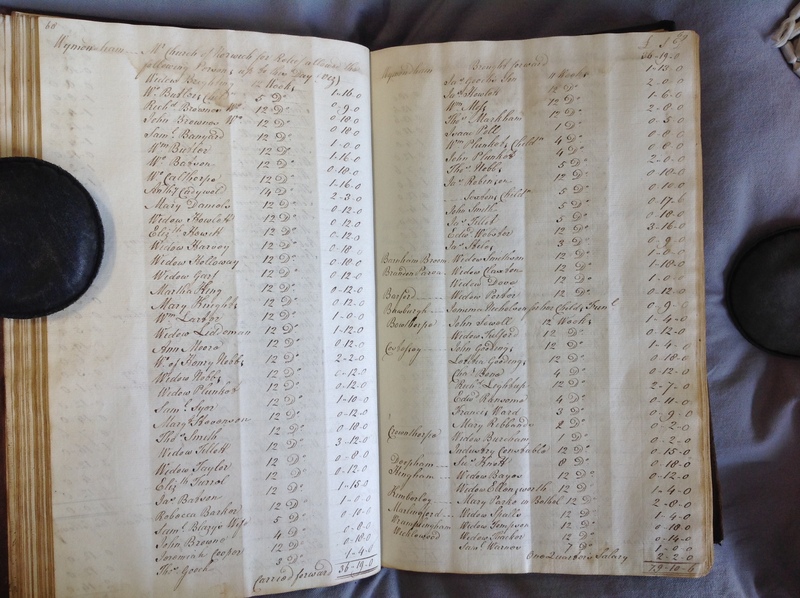 60
Wymondham Mr. Church of Norwich for Relief allowed the
following Persons up to this Day (Viz)
Widow 12 Weeks 1-16-0
Wm. Butlers Child 5 Do. 0-9-0
Richd. Brownes Wo. 12 Do. 0-18-0
John Brownes Wo. 12 Do. 0-18-0
Saml. Banyard 12 Do. 1-0-0
Wm. Butler 12 Do. 1-16-0
Wo. Babson 12 Do. 0-18-0
Wo. Calthorpe 12 Do. 1-16-0
Anthy. Cadywol 14 Do. 2-3-0
Mary Daniels 12 Do. 0-12-0
Widow Howlett 12 Do. 0-12-0
Elizth. Howitt 12 Do. 0-12-0
Widow Harvey 12 Do. 0-18-0
Widow Holloway 12 Do. 0-18-0
Widow Garf 12 Do. 0-12-0
Martha King 12 Do. 0-12-0
Mary Knights 12 Do. 0-12-0
Wm. Larter 12 Do. 1-0-0
Widow Liddeman 12 Do. 1-12-0
Ann Moore 12 Do. 0-12-0
Wo. of Henry Nobbs 12 Do. 2-2-0
Widow Nobbs 12 Do. 0-12-0
Widow Plunket 12 Do. 0-12-0
Saml. Syer 12 Do. 1-10-0
Mary 12 Do. 0-12-0
Thos. Smith 12 Do. 0-18-0
Widow Tillott 12 Do. 3-12-0
Widow Taylor 12 Do. 0-8-0
Elizth. Turrol 12 Do. 0-12-0
Jas. Babson 12 Do. 1-15-0
Rebecca Barker 12 Do. 1-0-0
Saml. Blazys Wife 5 Do. 0-10-0
John Browne 4 Do. 0-8-0
Jeremiah Cooper 12 Do. 0-18-0
Thos. Gooch 3 Do. 1-4-0
Carried forward 36-19-0
61
Wymondham Brought forward 36-19-0
Gooch 1-15-0
Howlett 12 Do. 2-0-0
Wm. Moss 12 Do. 1-6-0
Thos. Markham 12 Do. 2-8-0
Isaac Pell 1 Do. 0-5-0
Wm. Plunkets Childn. 4 Do. 0-8-0
John Plunket 4 Do. 0-8-0
Thos. Nobbs 5 Do. 2-0-0
Robinson 12 Do. 0-10-0
Childn. 5 Do. 0-10-0
John Smith 12 Do. 0-17-6
Tillet 5 Do. 0-10-0
Edwd. Webster 12 Do. 3-16-0
3 Do. 0-9-0
Barnham Broom Widow Smithson 12 Do. 1-0-0
Brandon Parva Widow Claxton 12 Do. 1-10-0
Widow Dows 12 Do. 1-0-0
Barford Widow Porter 12 Do. 0-12-0
Bawburgh 0-9-0
Bowthorpe John Jewell 12 Weeks 1-4-0
Widow Tulford 12 Do. 0-12-0
Cossey John Gooding 12 Do. 1-4-0
Gooding 12 Do. 0-18-0
Chas. 4 Do. 0-12-0
Richd. 12 Do. 2-7-0
Edwd. Ransome 4 Do. 0-11-0
Francis Ward 3 Do. 0-9-0
Mary Robbards 2 Do. 0-2-0
Crownthorpe Widow Burcham 1 Do. 0-2-0
Industry Constable 12 Do. 0-15-0
Deopham Thos. Knott 8 Do. 0-18-0
Hingham Widow Bayes 12 Do. 0-12-0
Widow Ellingworth 12 Do. 1-4-0
Kimberley Mary Parke in Bethel 12 Do. 2-8-0
Marlingford Widow Thalls 12 Do. 1-4-0
Wramplingham Widow Tompson 12 Do. 0-18-0
Wicklewood Widow 12 Do. 0-14-0
Saml. Warnes 7 Do. 1-0-0
One Quarters Salary 2-2-0
79-10-6